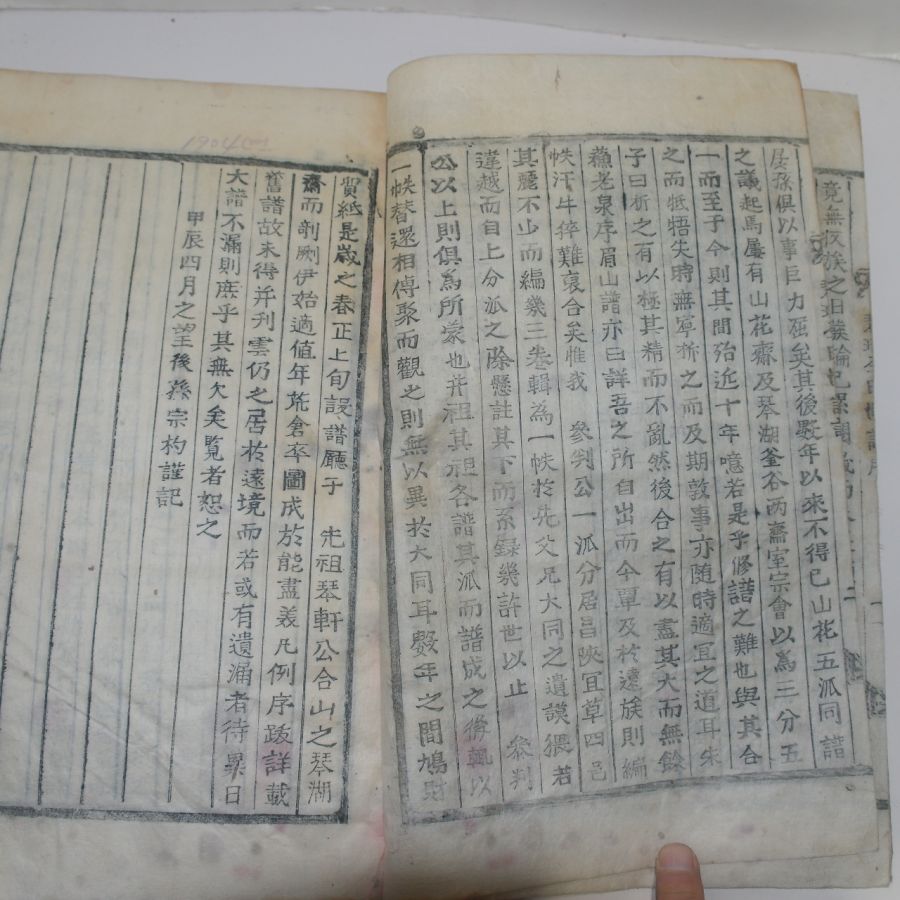 竟無收族之
孱孫俱以事巨力屈矣其後數年以來不得已山花五派同譜
之議起焉屢有山花齋及琴湖釜谷两齋室宗會以爲三分五
一而至于今則其間殆近十年噫若是乎修譜之難也與其合
之而牴牾失時無寧柝之而及期敦事亦随時適宜之道耳朱
子曰析之有以極其精而不亂然後合之有以盡其大而無餘
蘓老泉序眉山譜亦曰詳吾之所自出而今單及於遠族則編
帙汗牛倅難裒合矣惟我 叅判公一派分居昌陝宜草四邑
其麗不少而編幾三卷輯為一帙於先父兄大同之遺謨猥若
違越而自上分派之除懸註其下而系錄幾許世以止 叅判
公以上則俱爲所蒙也并祖其祖各譜其派而譜成之後輒以
一帙替還相傳聚而觀之則無以異於大同耳數年之間鳩財
貿紙是歲之春正上旬設譜廳于 先祖琴軒公合山之琴湖
齋而剞劂伊始適值年荒倉卒圖成於能盡義凡例序跋詳載
舊譜故未得并刊雲仍之居於遠境而若或有遺漏者待異日
大譜不漏則庶乎其無欠矣覧者恕之
甲辰四月之望後孫宗杓謹記